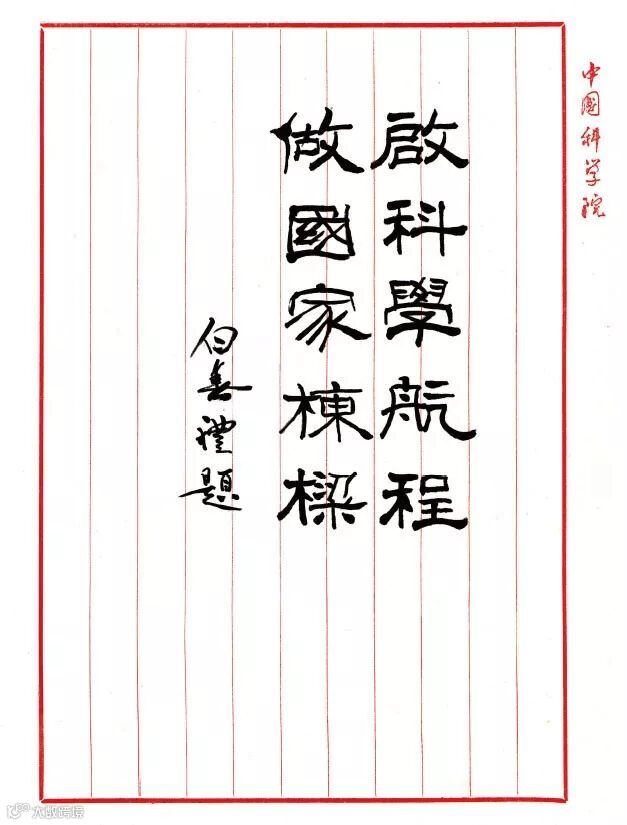 中国科学院
啟科學航程
做國家棟樑
白春禮題
大数跨境